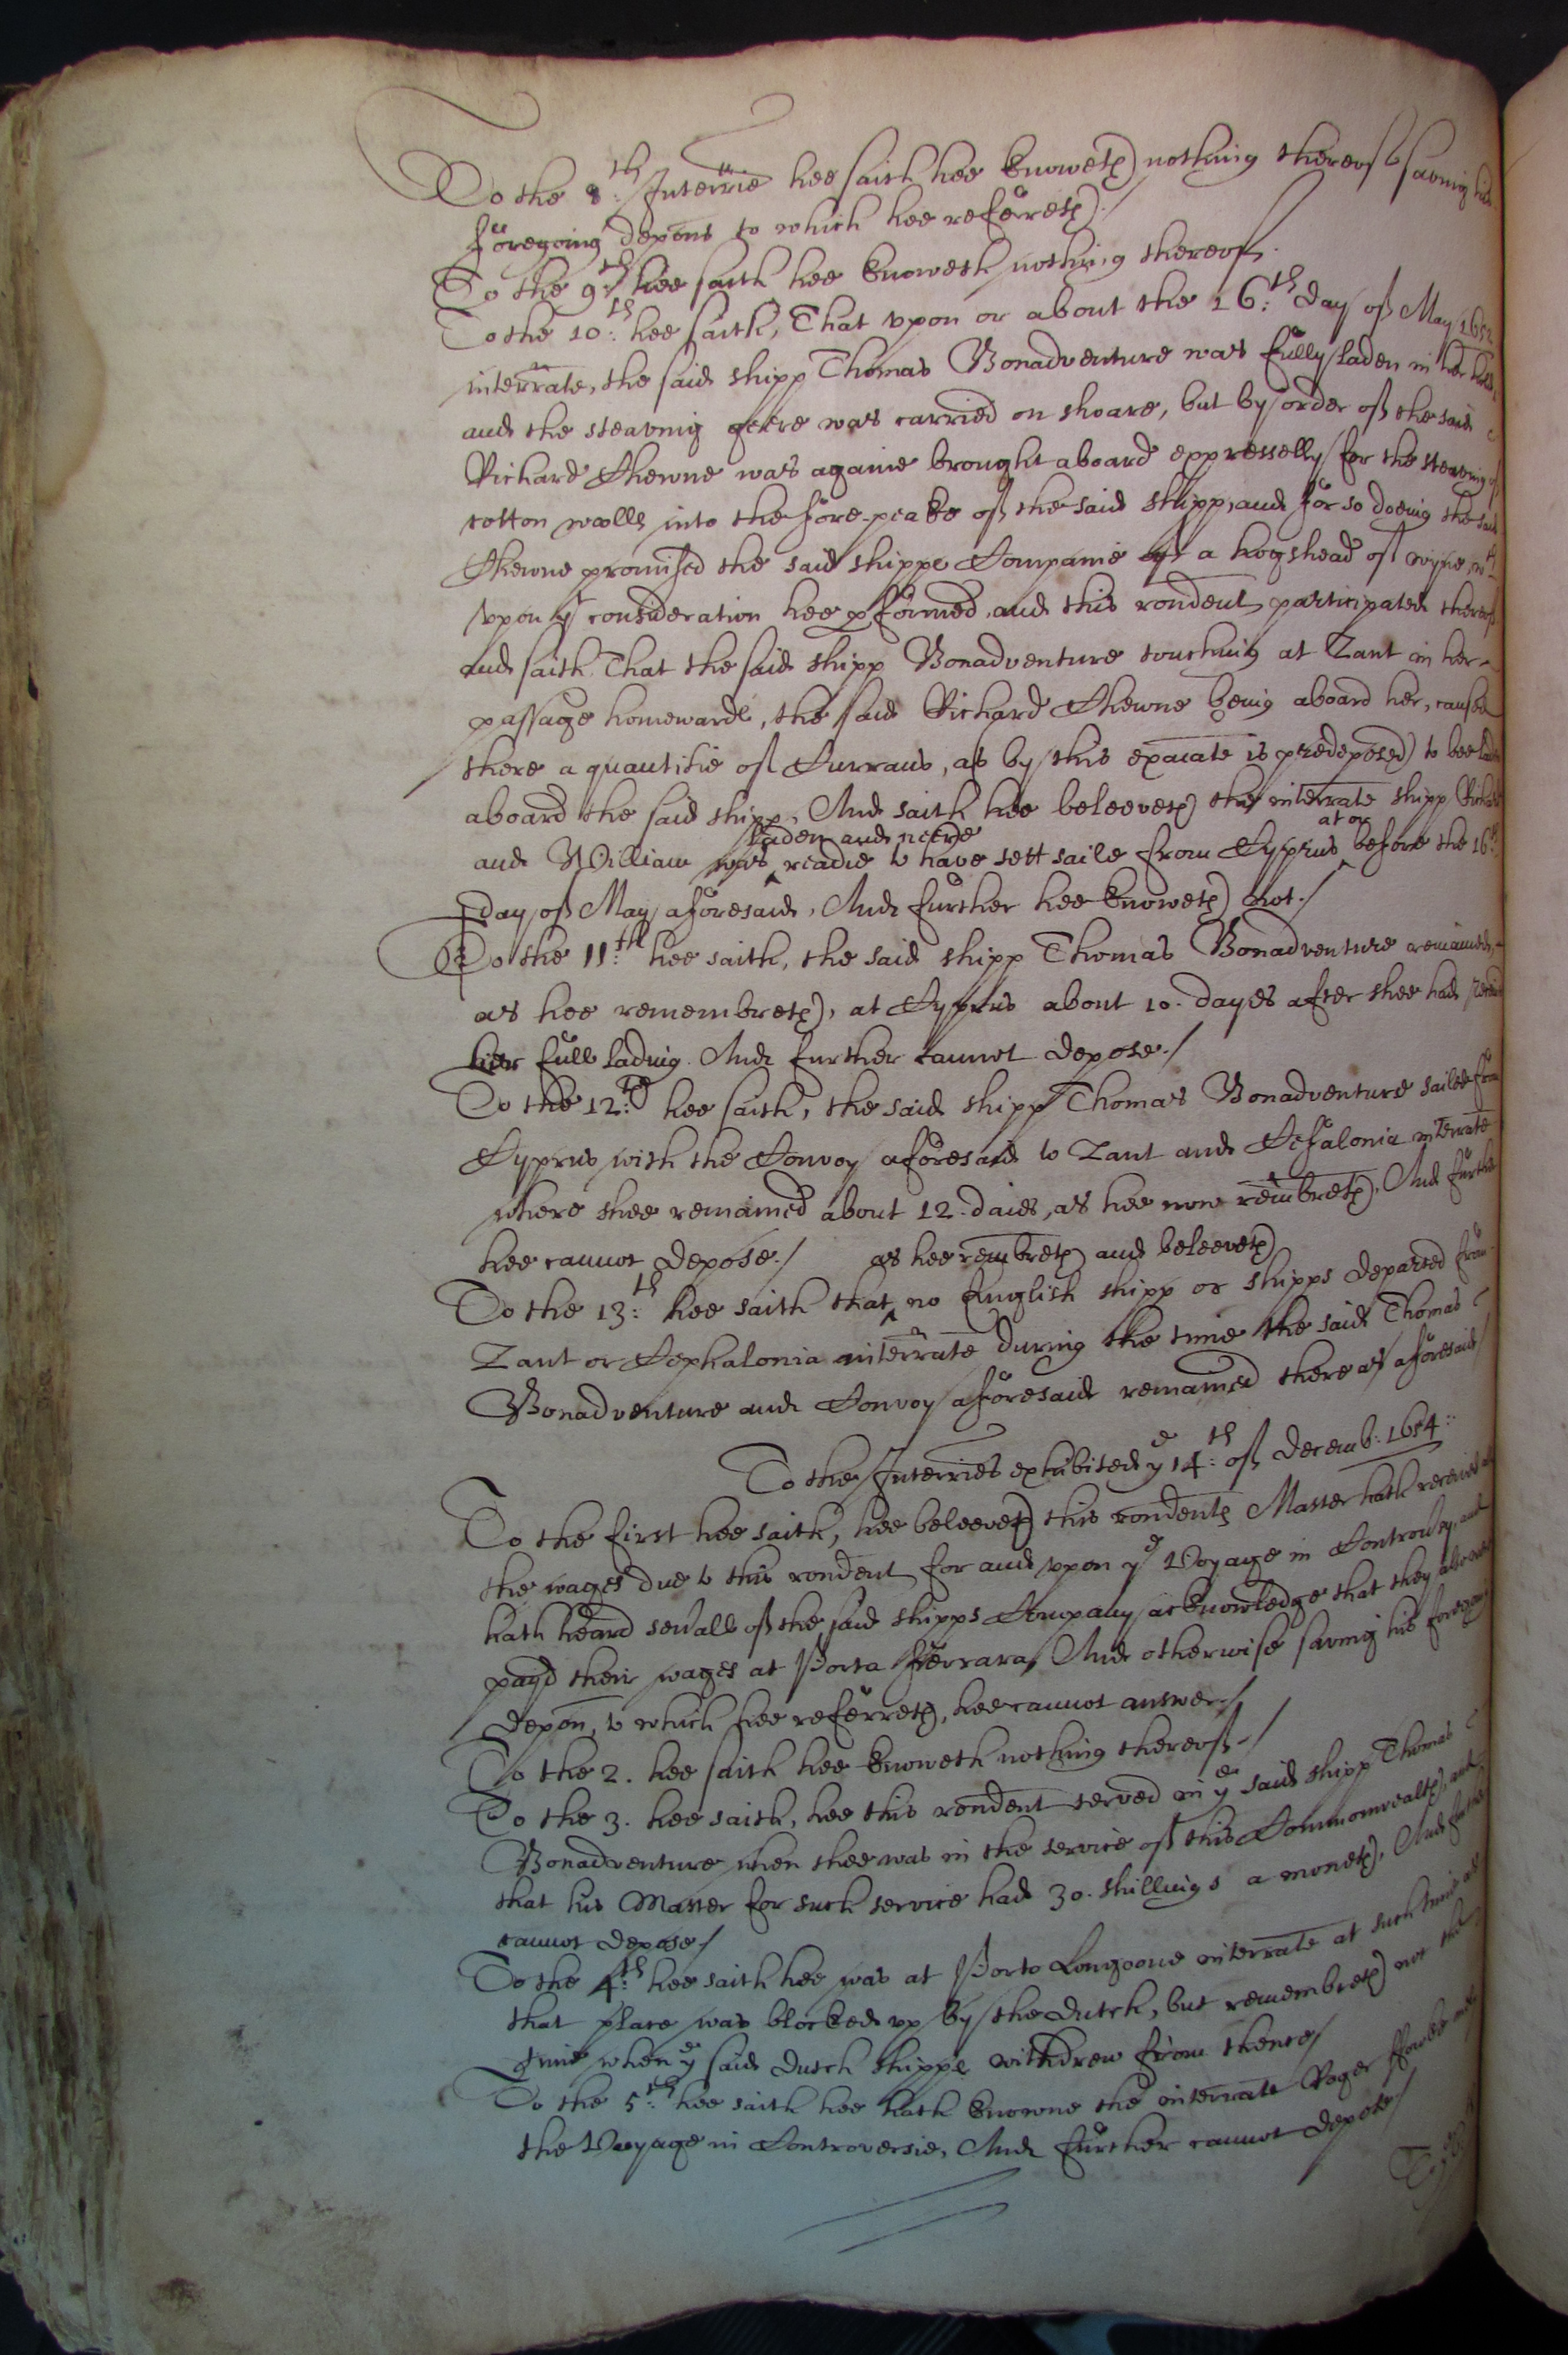 To the 8:th Interrie hee saith hee knoweth nothing thereof saving his
foregoing depons to which hee referreth./
To the 9:th hee saith hee knoweth nothing thereof.
To the 10:th hee saith, That vpon or about the 16:th day of May 1652
interrate, the said shipp Thomas Bonadventure was fully laden in her hold,
and the steaving geere was carried on shoare, but by order of the said
Richard Chewne was againe brought aboard expresselly for the steaving of
cotton wolls into the fore-peake of the said shipp, and for so doeing the said
Chewne promised the said shipps Companie a hogshead of wyne, wch
vpon yt consideration hee pformed, and this rondent participated thereof.
And saith That the said shipp Bonadventure touching at Zant in her
passage homewards, the said Richard Chewne being aboard her, caused
there a quantitie of Currans, as by this exaiate is predeposed) to bee laden
aboard the said shipp, And saith hee beleeveth the interrate shipp Richard
and William was laden and neere readie to have sett saile from Cyprus at or before the 16:th
day of May aforesaid, And further hee knoweth not./
To the 11:th hee saith, the said shipp Thomas Bonadventure remained,
as hee remembreth, at Cyprus about 10. dayes after shee had received
her full lading. And further cannot depose./
To the 12:th hee saith, the said shipp Thomas Bonadventure sailed from
Cyprus with the Convoy aforesaid to Zant and Cefalonia interrate
where shee remained about 12. daies, as hee now rembreth, And further
hee cannot depose./
To the 13:th hee saith that as hee rembreth and beleeveth no English shipp or shipps departed from
Zant or Cephalonia interrate during the time the said Thomas
Bonadventure and Convoy aforesaid remained there as aforesaid/
To the Interries exhibited ye 14:th of Decemb: 1654:
To the first hee saith, hee beleeveth this rondents Master hath received all
the wages due to this rondent for and vpon ye Voyage in Controvsy, and
hath heard sevall of the said shipps Company acknowledge that they also were
payd their wages at Porta Ferrara, And otherwise saving his foregoing
depon, to which hee referreth, hee cannot answer./
To the 2. hee saith hee knoweth nothing thereof./
To the 3. hee saith, hee this rondent served in ye said shipp Thomas
Bonadventure when shee was in the service of this Commonwealth, and
that his Master for such service had 30. shillings a moneth, And further
cannot depose/
To the 4:th hee saith hee was at Porto Longoone interrate at such time as
that place was blocked vp by the Dutch, but remembreth not the
time when ye said Dutch shipps withdrew from thence/
To the 5:th hee saith hee hath knowne the interrate Roger
the Voyage in Controversie, And further cannot depose/